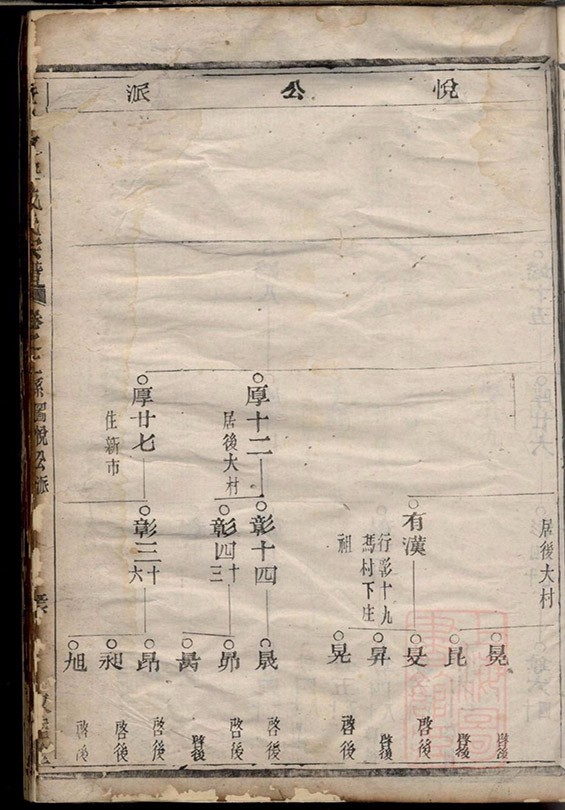 悅公派
居後大村
晃
啓後
昆
啓後
有漢
行彰十九
馮村下庄
祖
旻
啓後
昇
啓後
晃
啓後
厚十二
居後大村
彰十四
晟
啓後
彰四十三
昴
啓後
啓後
厚廿七
住新市
彰三十六
昂
啓後
昶
啓後
旭
啓後